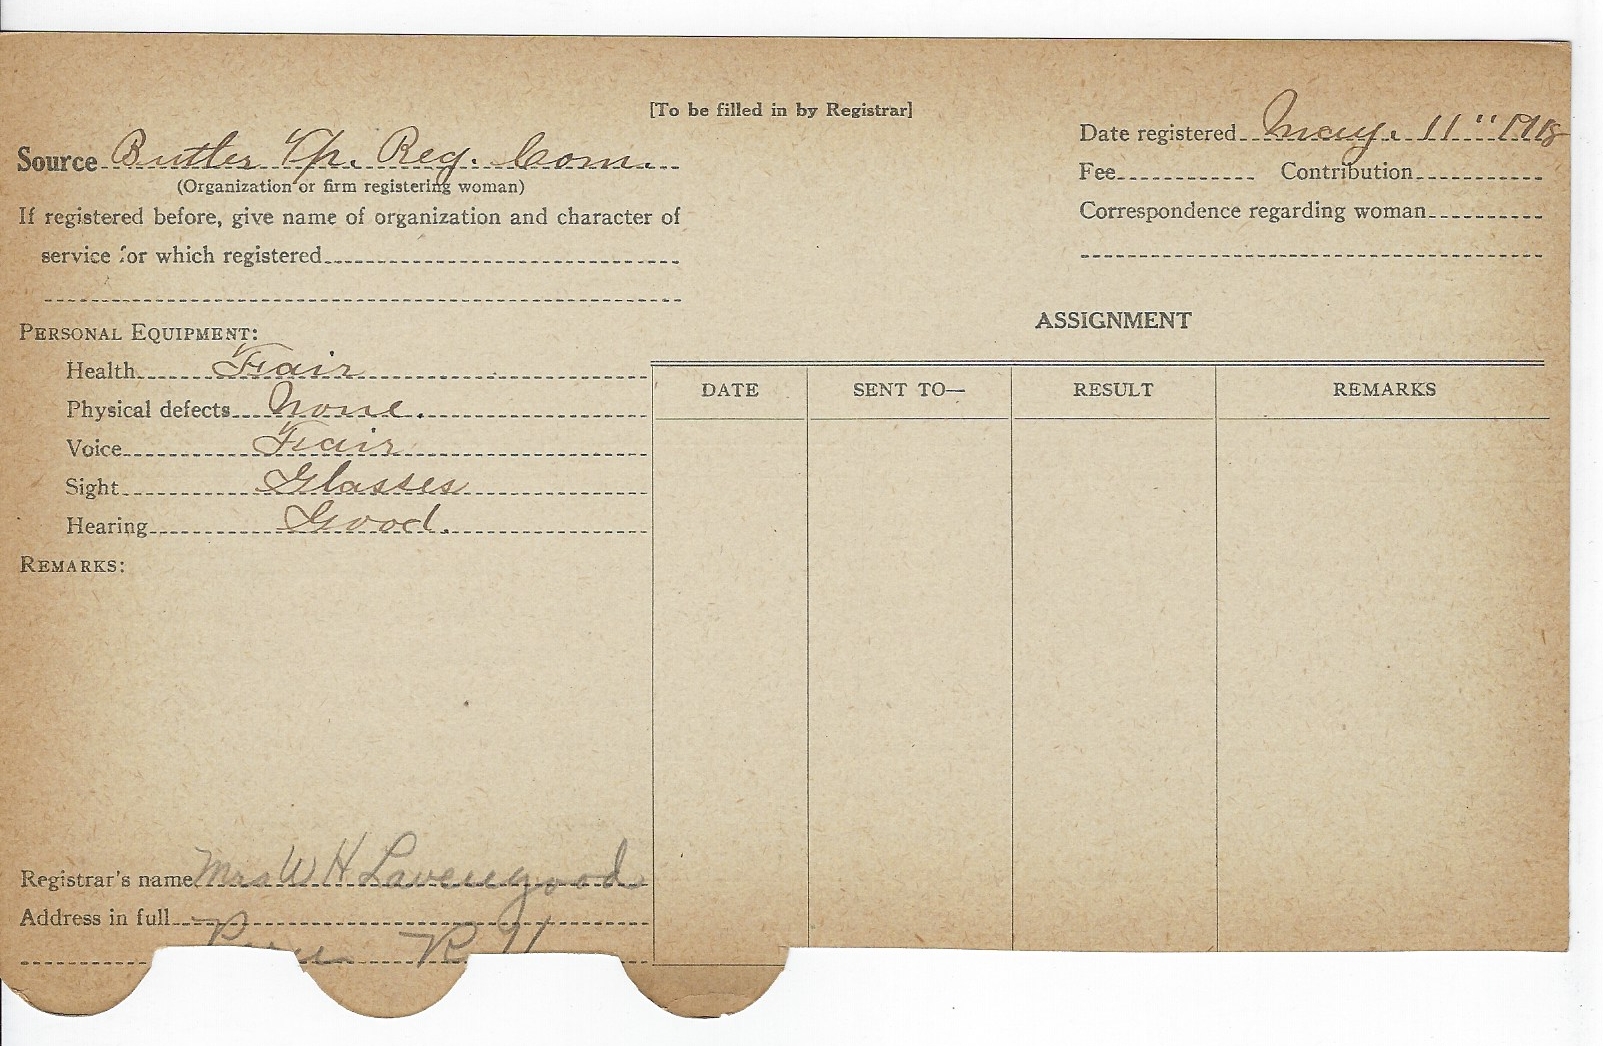 [To be filled in by Registrar]
Date registered May. 11" 1918
Source Butler Tp. Reg. Com.
(Organization or firm registering woman)
Fee Contribution
If registered before, give name of organization and character of
Correspondence regarding woman
service for which registered
ASSIGNMENT
PERSONAL EQUIPMENT:
Health Fair
DATE SENT TO— RESULT REMARKS
Physical defects None.
Voice Fair
Sight Glasses
Hearing Good.
REMARKS:
Registrar's name Mrs W H Lavengood
Address in full
Peru R 11